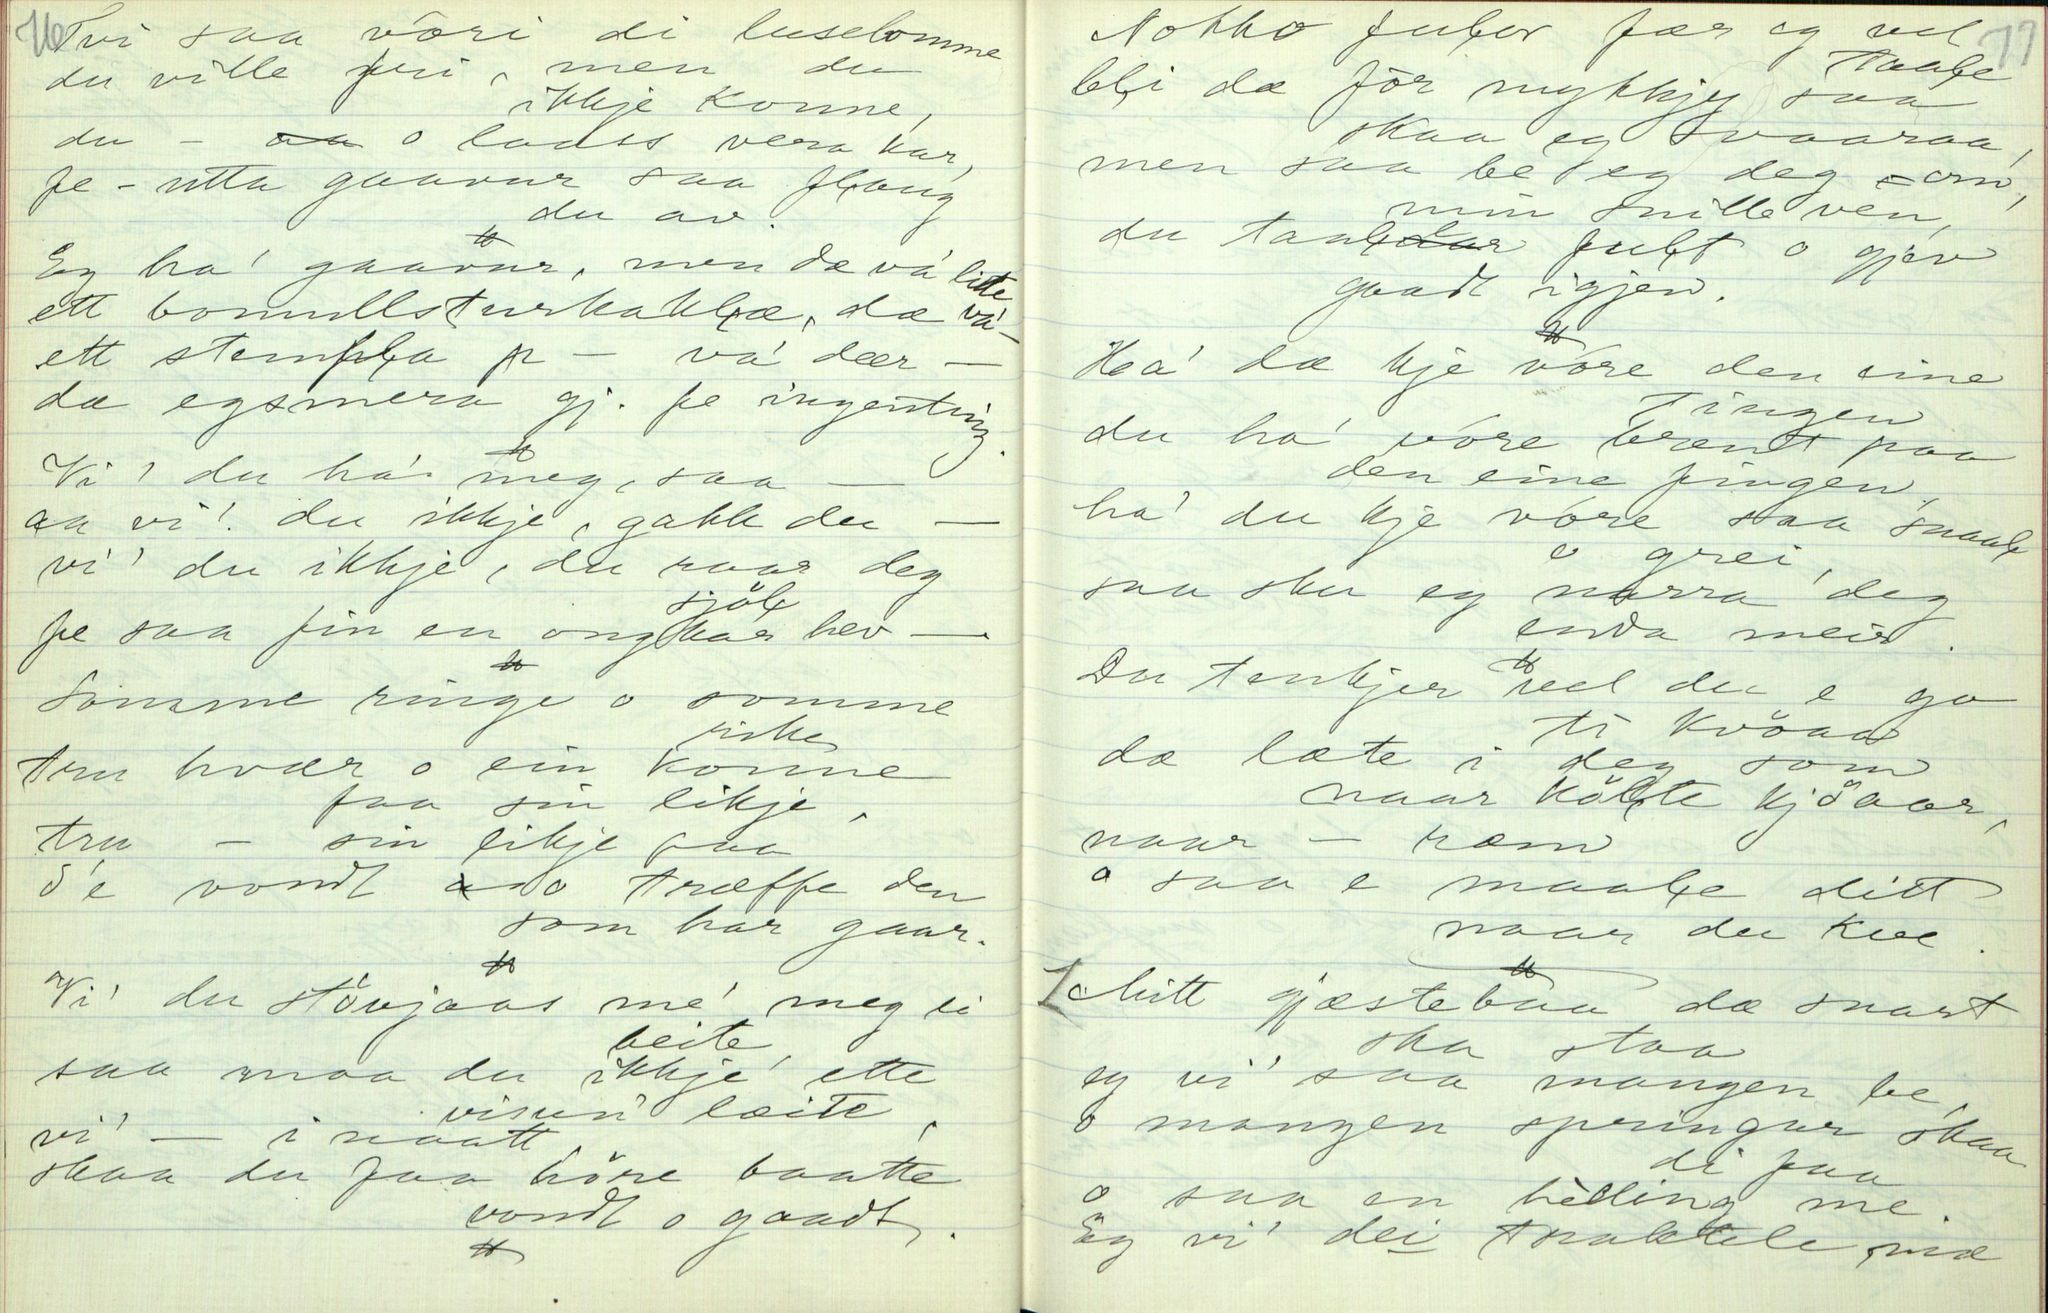 76
Tvi saa væri di luselomme
du ville fri, men du
ikkje konne,
du – o ladss vera kar,
fe-utta gaavur saa flaug
du av.
Eg ha' gaavur, men dæ va' lite
ett bomullsturkakle, dæ va' –
ett stempla p – va' dær –
da egsmera gj. fe ingenting.
Vi' du ha' meg, saa –
aa vi' du ikkje, gakk du –
vi' du ikkje, du raar deg
sjöl
fe saa fin en ongkar hev –
Somme ringe o somme
rike
tru hvær o ein konne
faa sin likje,
tru – sin likje faa
d'e vondt o træffe den
som har gaar.
Vi' du stövjaas me' meg ei
beite,
saa maa du ikkje ette
visun' læite,
vi' – i naatt
skaa du faa höre baatte
vondt o gaadt.
77
Nokko fuler fær eg vel
taale
bli dæ för mykkjy saa
skaa eg svaaraa,
men saa be eg deg – om,
min snille ven,
du taaler fult o gjev
gaadt igjen.
Ha' dæ kje vöre den eine
tingen
du ha' vöre brendt paa
den eine fingen,
ha' du kje vöre saa snaal
o grei,
saa sku eg narra deg
enda meir.
Du tenkjer vel du e go
ti kvöaa
dæ læte i deg som
naar költe kjöaar,
naar – ræm
o saa e maale ditt
naar du kve.
Mitt gjæstebaa dæ snart
ska staa
eg vi' saa mangen be,
o mangen springur skaa
di faa
o saa en helling me.
Eg vi' dei traktele mæ